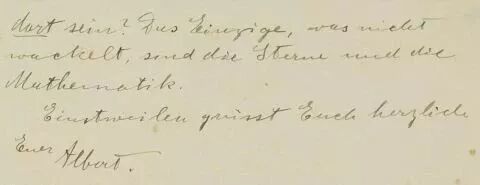 dort sein? Das Einzige, was nicht
wackelt, sind die Sterne und die
Mathematik.
Einstweilen grüsst Euch herzlich
Euer Albert.